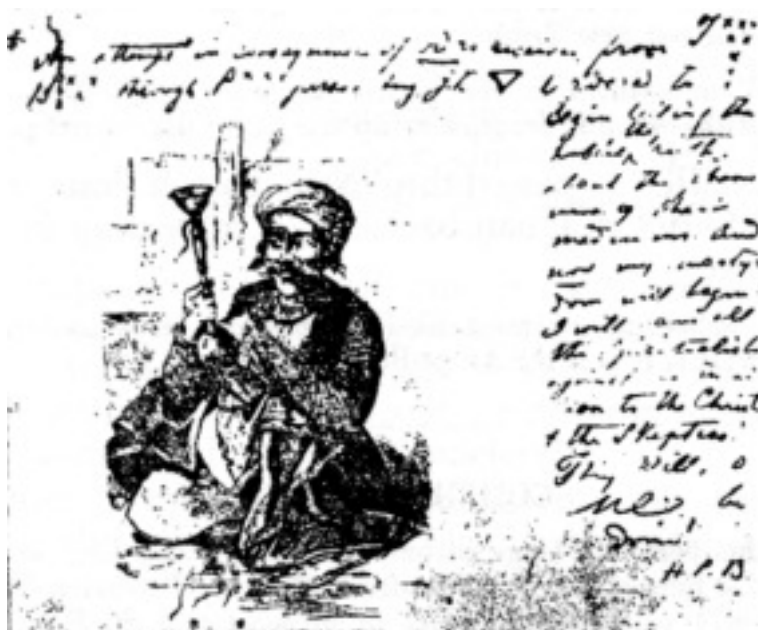 An attempt in consequence of received from
B*** through P*** ▽ ordered to
begin telling the
public the truth
about the
& their
mediums. And
now my martyr
dom will begin
I will all
the Spiritualist
against me in
ion to the Christ
& the Skeptics!
Thy Will, o
M be
done!
H. P. B